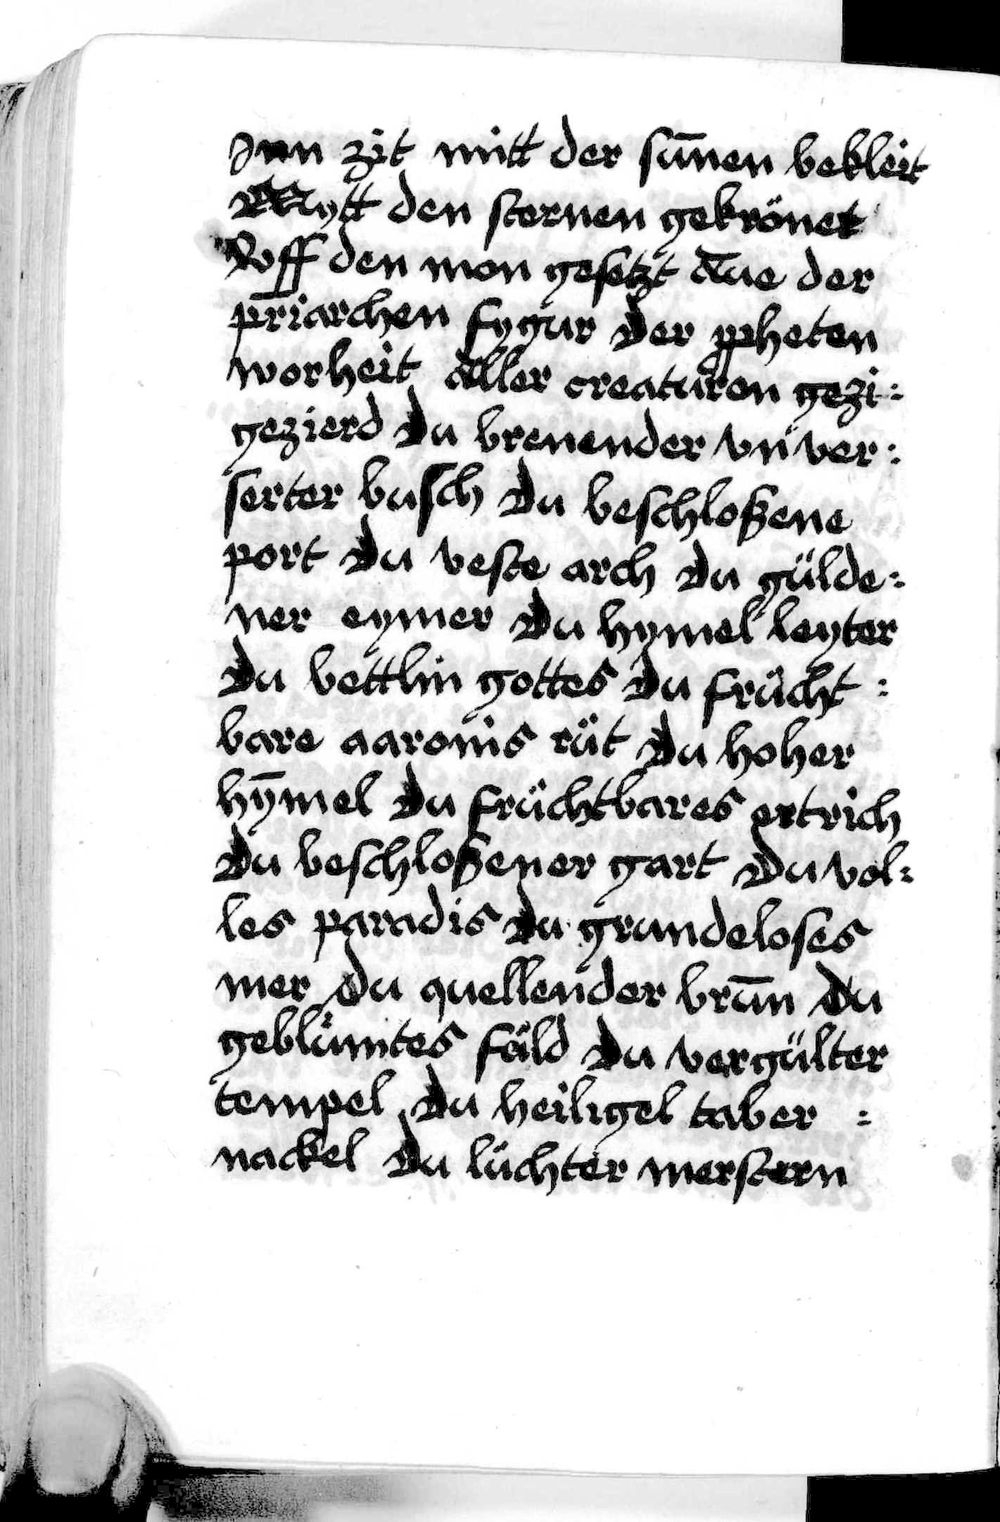 Inn zit mitt der sūnen bekleit
Mytt den sternen gekrönet
Voff den mon gesetzt der
pr̄iarchen fygur Der ꝓpheten
worheit aller creaturen gezi:
gezierd Du brenender vnver:
serter busch Du beschloßene
port Du veste arch Du gülde:
ner eymer Du hymel leyter
Du bettlin gottes Du frücht:
bare aaronis rüt Du hoher
hȳmel Du früchtbares ertrich
Du beschloßener gart Du vol:
les paradis Du grundeloses
mer Du quellender brūn Du
geblümtes fäld Du vergülter
tempel Du heiligel taber:
nackel Du lüchter merstern